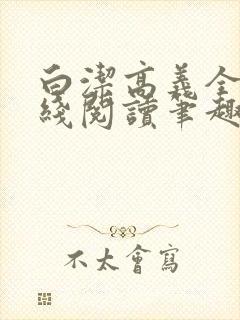 白潔高義全
綫閱讀筆趣
不太會寫